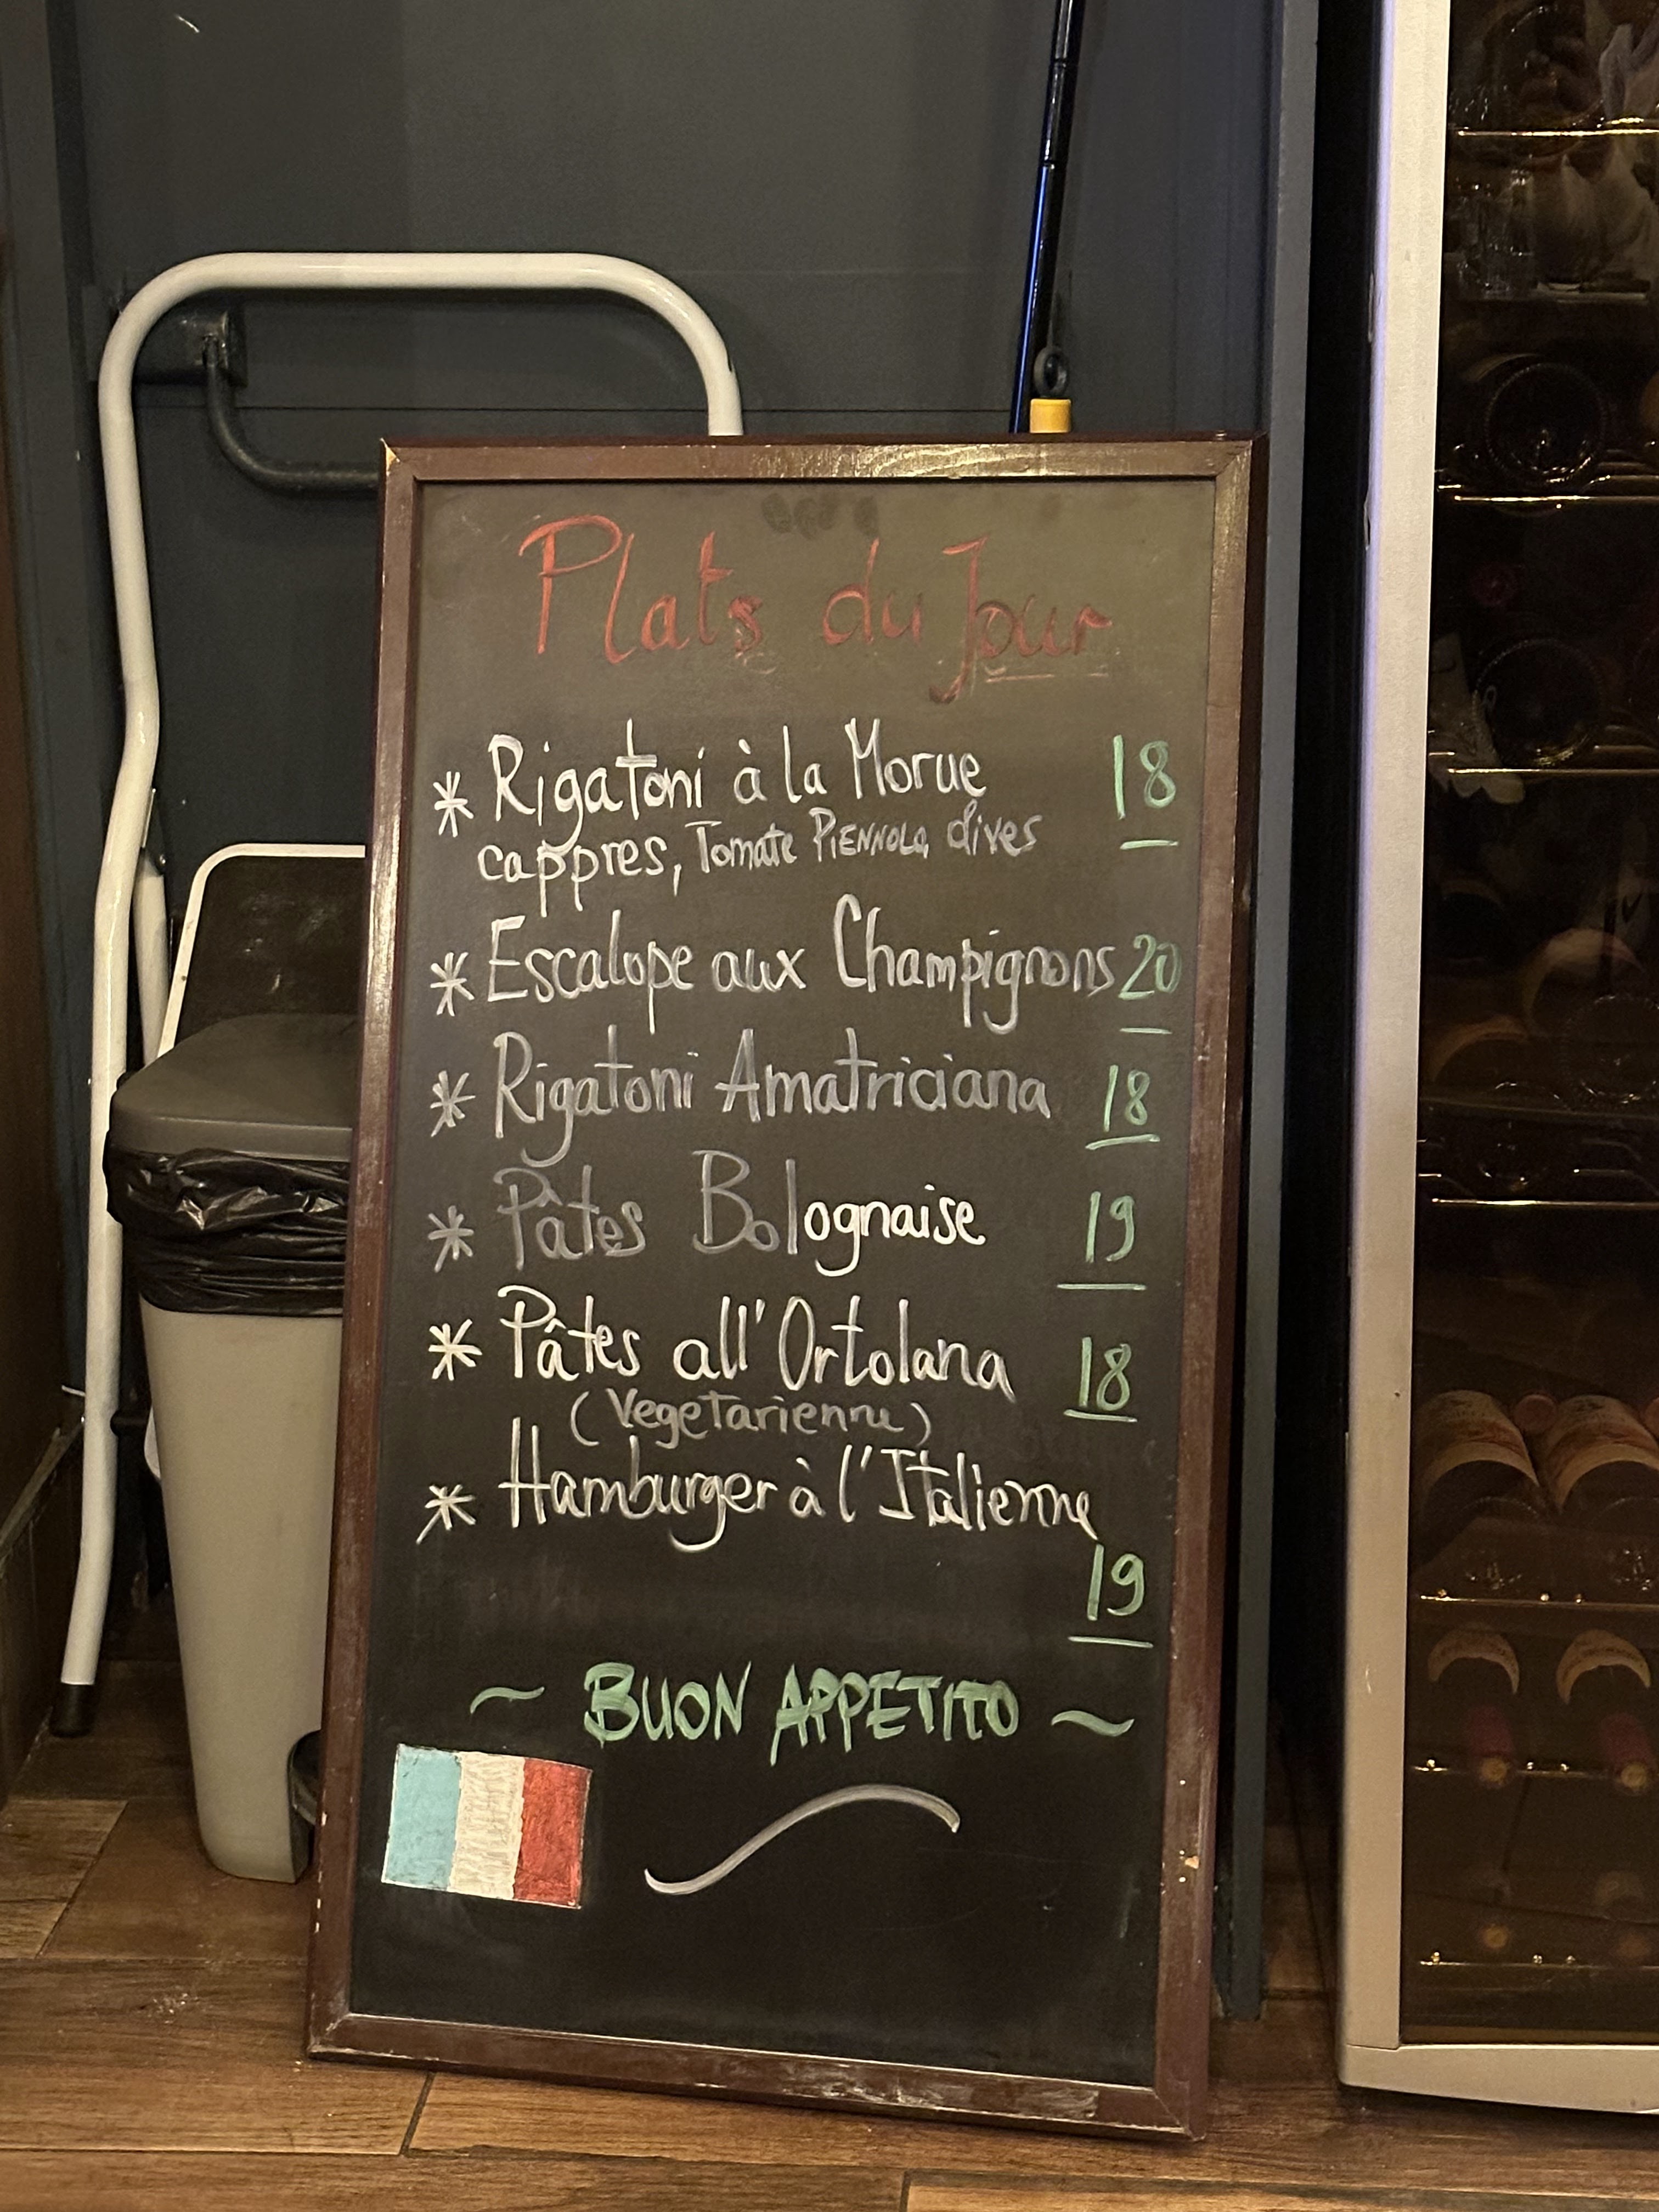 Plats du Jour
* Rigatoni à la Morue 18
cappres, Tomate PIENNOLO, olives
* Escalope aux Champignons 20
* Rigatoni Amatriciana 18
* Pâtes Bolognaise 19
* Pâtes all'Ortolana 18
(Vegetarienne)
* Hamburger à l'Italienne
19
~ BUON APPETITO ~